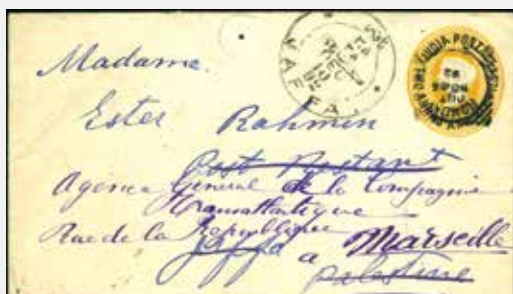 Madame
Ester Rahmin
Post Restant
Agence General de la Compagnie
Transatlantique
Rue de la Republique
Jaffa a Marseille
Palestine
JAFFA
INDIA POSTAGE